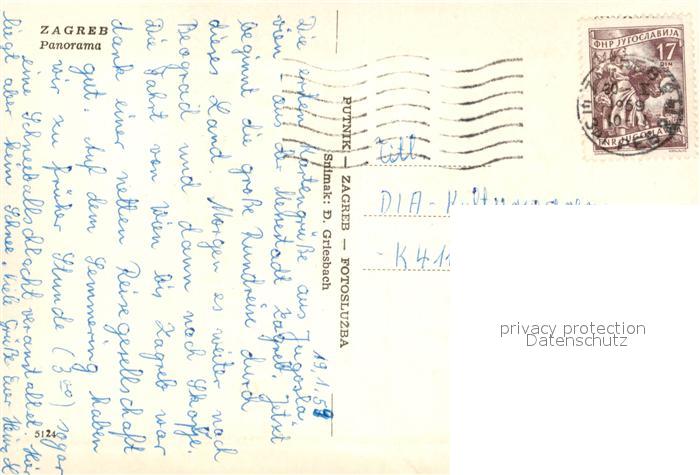 ZAGREB
Panorama
19.1.59
Die ersten Kartengrüße aus Jugosla-
vien, aus der Messestadt Zagreb. Jetzt
beginnt die große Rundreise durch
dieses Land. Morgen es weiter nach
Beograd und dann nach Skopje.
Die Fahrt von Wien bis Zagreb war
dank einer netten Reisegesellschaft
gut. Auf dem Semmering haben
wir zu früher Stunde (3⁰⁰) sogar
eine Schneeballschlacht veranstaltet. Hier
liegt aber kein Schnee. Viele Grüße Euer
5124
PUTNIK — ZAGREB — FOTOSLUŽBA
Snimak: Đ. Griesbach
ФНР ЈУГОСЛАВИЈА
17
DIN
FNR JUGOSLAVIJA
DIA-
K 411
privacy protection
Datenschutz